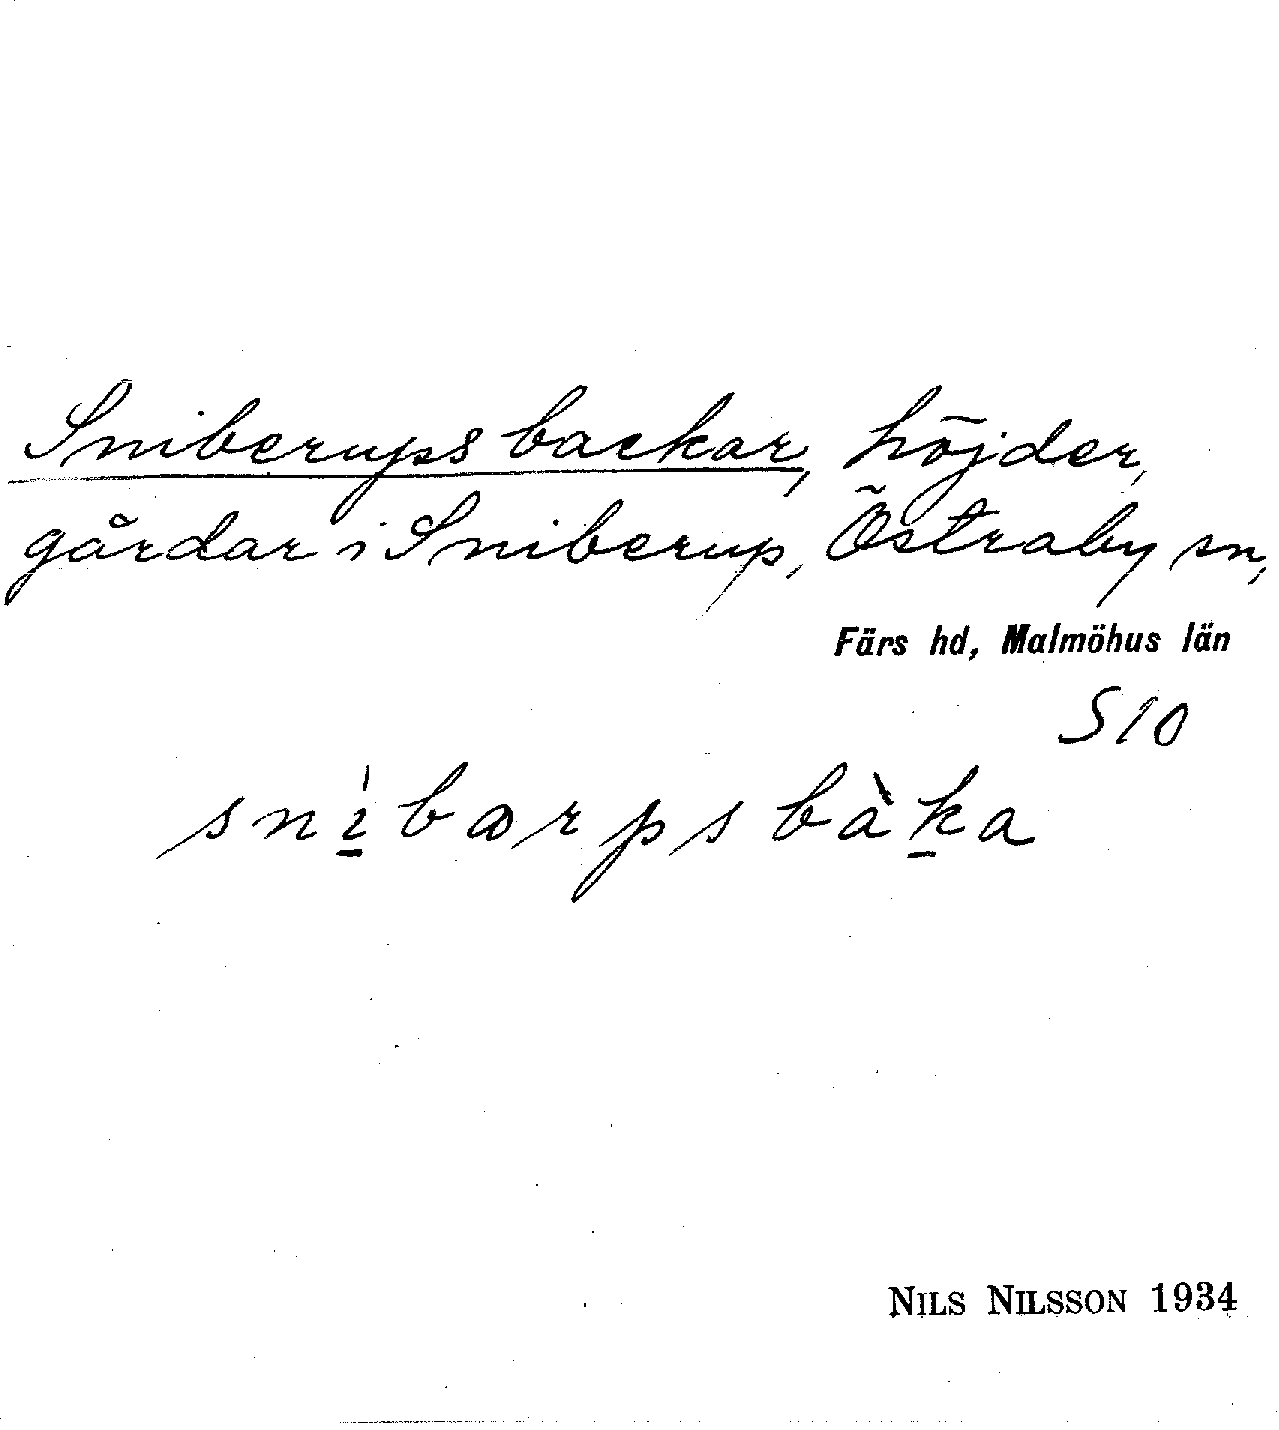 Sniberups backar, höjder,
gårdar i Sniberup, Östraby sn,
Färs hd, Malmöhus län
S10
snìbærpsbàka
NILS NILSSON 1934